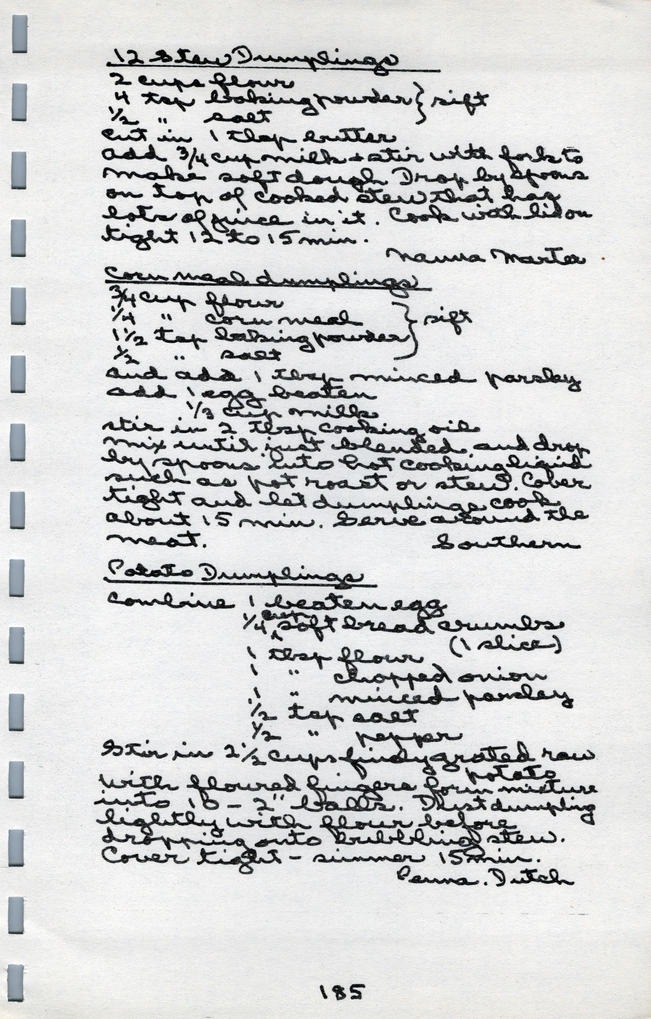 12 Stew Dumplings
2 cups flour
4 tsp baking powder } sift
1/2 " salt
cut in 1 tbsp butter
add 3/4 cup milk + stir with fork to
make soft dough Drop by spoons
on top of cooked stew that has
lots of juice in it. Cook with lid on
tight 12 to 15 min.
Nanna Marta
Corn meal dumplings
3/4 cup flour
1/4 " corn meal } sift
1 1/2 tsp baking powder
1/2 " salt
and add 1 tbsp minced parsley
add 1 egg beaten
1/3 cup milk
stir in 2 tbsp cooking oil
mix until just blended and drop
by spoons into hot cooking liquid
such as pot roast or stew. Cover
tight and let dumplings cook
about 15 min. Serve around the
meat.
Southern
Potato Dumplings
combine 1 beaten egg
1/4 cup soft bread crumbs
(1 slice)
1 tbsp flour
1 " chopped onion
1 " minced parsley
1/2 tsp salt
1/2 " pepper
Stir in 2 1/2 cups finely grated raw
potato
with floured fingers form mixture
into 10 - 2" balls. Dust dumpling
lightly with flour before
dropping onto bubbling stew.
Cover tight - summer 15 min.
Penna. Dutch
185